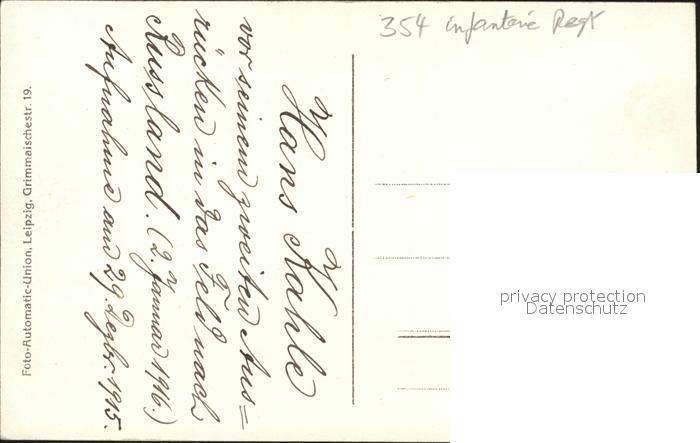 354 infanterie Regt
Hans Kahle
vor seinem zweiten Aus=
rücken in das Feld nach
Russland. (2. Januar 1916.)
Aufnahme am 29. Dezbr. 1915.
Foto-Automatic-Union, Leipzig, Grimmaischestr. 19.
privacy protection
Datenschutz